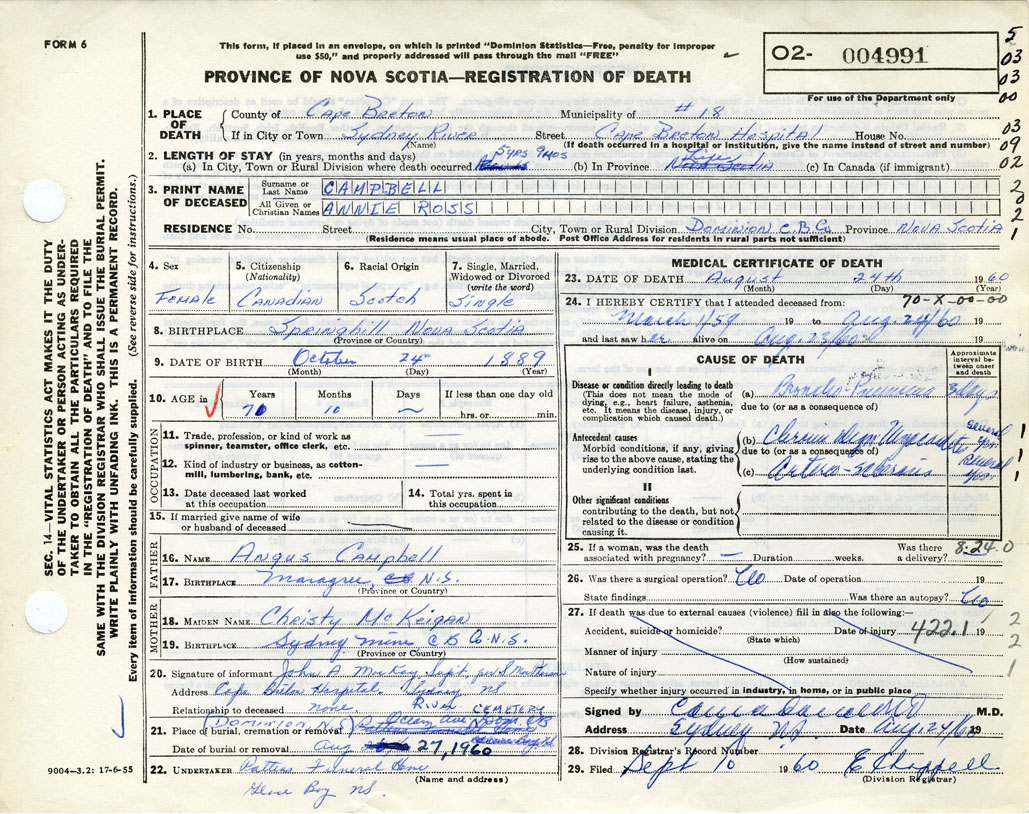 FORM 6
This form, if placed in an envelope, on which is printed "Dominion Statistics—Free, penalty for improper
use $50," and properly addressed will pass through the mail "FREE"
PROVINCE OF NOVA SCOTIA—REGISTRATION OF DEATH
02- 004991
For use of the Department only
5
03
03
00
03
09
02
2
0
2
1
SEC. 14—VITAL STATISTICS ACT MAKES IT THE DUTY
OF THE UNDERTAKER OR PERSON ACTING AS UNDER-
TAKER TO OBTAIN ALL THE PARTICULARS REQUIRED
IN THE "REGISTRATION OF DEATH" AND TO FILE THE
SAME WITH THE DIVISION REGISTRAR WHO SHALL ISSUE THE BURIAL PERMIT.
WRITE PLAINLY WITH UNFADING INK. THIS IS A PERMANENT RECORD.
Every item of information should be carefully supplied. (See reverse side for instructions.)
1. PLACE OF DEATH
County of Cape Breton Municipality of #18
If in City or Town Sydney River Street Cape Breton Hospital House No.
(Name) (If death occurred in a hospital or institution, give the name instead of street and number)
2. LENGTH OF STAY (in years, months and days) 5 yrs 9 mos Life
(a) In City, Town or Rural Division where death occurred (b) In Province Nova Scotia (c) In Canada (if immigrant)
3. PRINT NAME OF DECEASED
Surname or Last Name CAMPBELL
All Given or Christian Names ANNIE ROSS
RESIDENCE No. Street City, Town or Rural Division Dominion C.B.Co. Province Nova Scotia
(Residence means usual place of abode. Post Office Address for residents in rural parts not sufficient)
4. Sex
Female
5. Citizenship
(Nationality)
Canadian
6. Racial Origin
Scotch
7. Single, Married, Widowed or Divorced
(write the word)
Single
8. BIRTHPLACE Springhill Nova Scotia
(Province or Country)
9. DATE OF BIRTH October 24 1889
(Month) (Day) (Year)
10. AGE in
Years Months Days If less than one day
70 10 hrs. or min.
OCCUPATION
11. Trade, profession, or kind of work as
spinner, teamster, office clerk, etc.
12. Kind of industry or business, as cotton-
mill, lumbering, bank, etc.
13. Date deceased last worked
at this occupation
14. Total yrs. spent in
this occupation
15. If married give name of wife
or husband of deceased
FATHER
16. NAME Angus Campbell
17. BIRTHPLACE Margree, N.S.
(Province or Country)
MOTHER
18. MAIDEN NAME Christy McKeigan
19. BIRTHPLACE Sydney mine C B Co. N.S.
(Province or Country)
20. Signature of informant John A MacKay, Supt. per
Address Cape Breton Hospital. Sydney River NS
Relationship to deceased none
21. Place of burial, cremation or removal (Dominion, N.S.) Ocean Ave CEMETERY
Date of burial or removal Aug 27, 1960
22. UNDERTAKER Patten Funeral Home
(Name and address)
Glace Bay NS.
9004—3.2: 17-6-55
MEDICAL CERTIFICATE OF DEATH
23. DATE OF DEATH August 24th 1960
(Month) (Day) (Year)
24. I HEREBY CERTIFY that I attended deceased from: 70-X-00-00
March 1/59 19 to Aug. 24/60 19
and last saw her alive on Aug. 23/60 19
CAUSE OF DEATH
Approximate interval between onset and death
I
Disease or condition directly leading to death
(This does not mean the mode of
dying, e.g., heart failure, asthenia,
etc. It means the disease, injury, or
complication which caused death.)
(a) Broncho Pneumonia 3 days
due to (or as a consequence of)
Antecedent causes
Morbid conditions, if any, giving
rise to the above cause, stating the
underlying condition last.
(b) Chronic Myocarditis Several yrs. 1
due to (or as a consequence of)
(c) Arterio-sclerosis Several yrs. 1
1
II
Other significant conditions
contributing to the death, but not
related to the disease or condition
causing it.
25. If a woman, was the death
associated with pregnancy? Duration weeks. Was there
a delivery? 8-24-0
26. Was there a surgical operation? No Date of operation 19
State findings Was there an autopsy? No
27. If death was due to external causes (violence) fill in also the following:—
Accident, suicide or homicide? Date of injury 422.1 19 2
(State which)
Manner of injury 2
(How sustained)
Nature of injury 1
Specify whether injury occurred in industry, in home, or in public place
Signed by M.D.
Address Sydney N.S. Date Aug. 24/60 19
28. Division Registrar's Record Number
29. Filed Sept 10 1960 E Chappell
(Division Registrar)